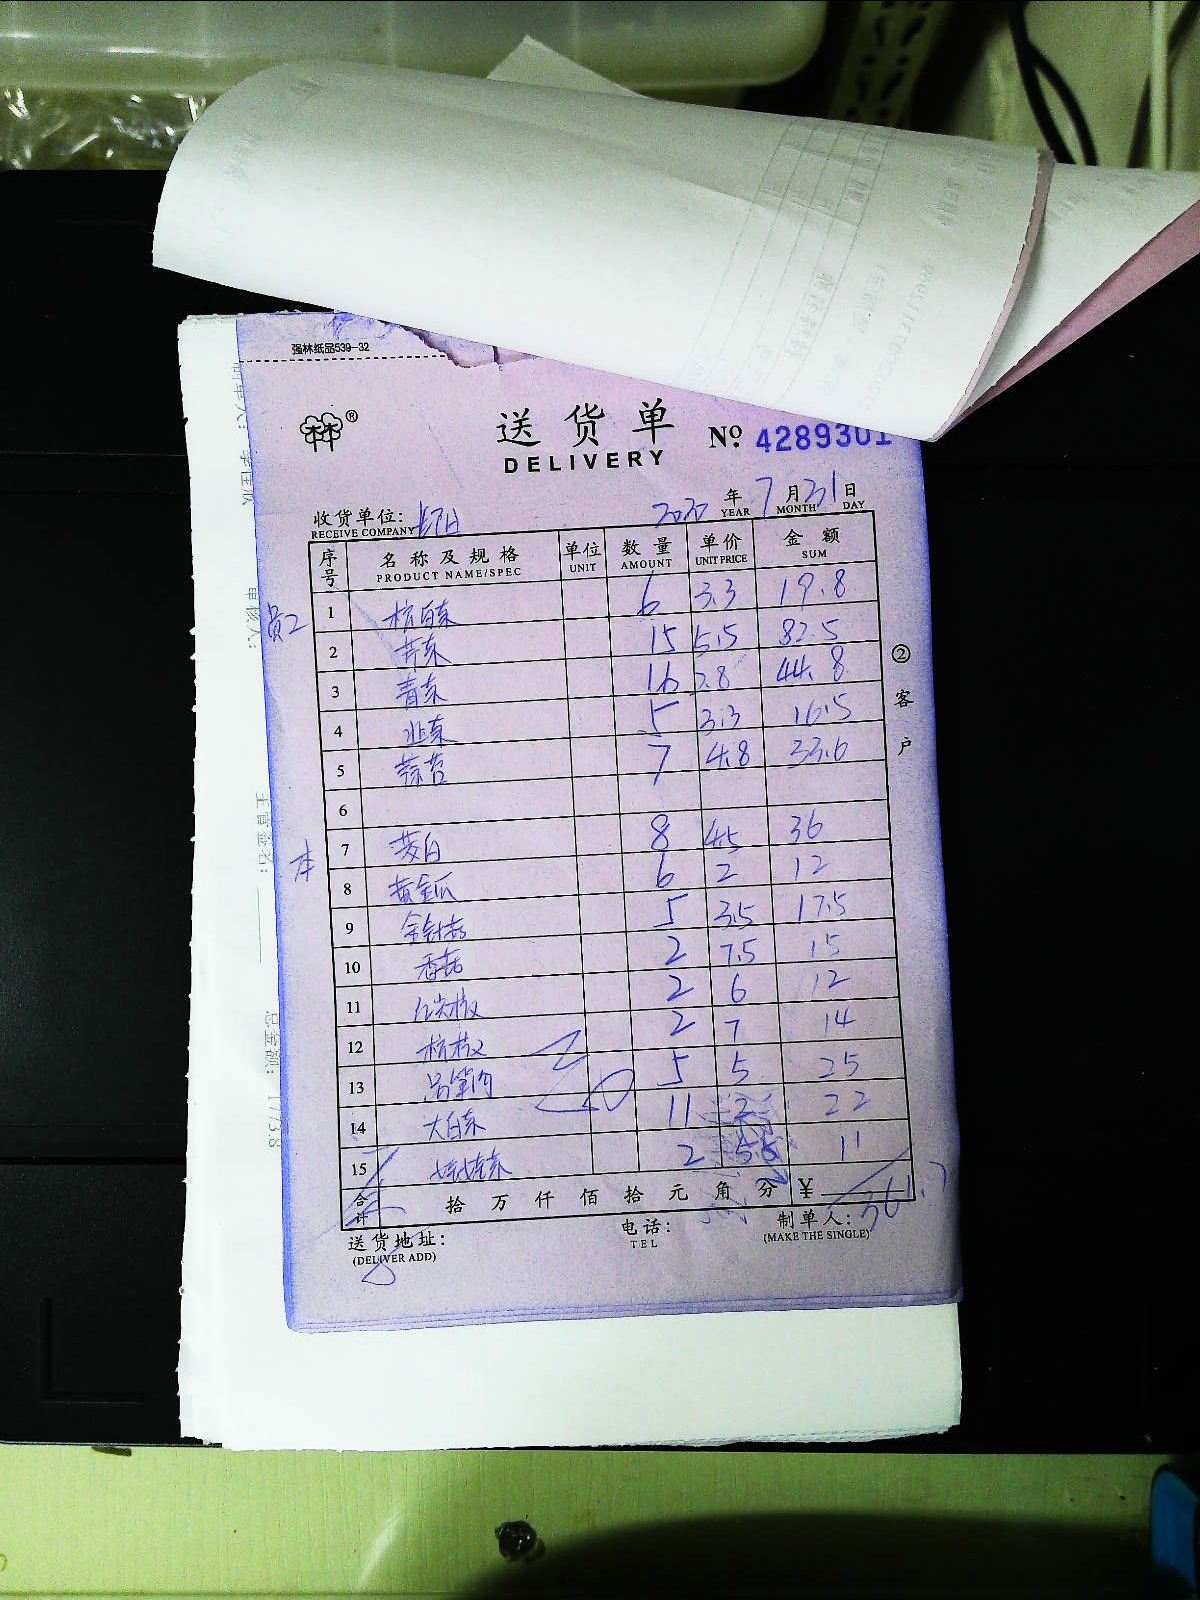 强林纸品539-32
林林®
送货单 № 4289301
DELIVERY
收货单位: 2020 年 7 月 31 日
RECEIVE COMPANY YEAR MONTH DAY
序号 名称及规格 单位 数量 单价 金额
PRODUCT NAME/SPEC UNIT AMOUNT UNIT PRICE SUM
员工 1 杭白菜 6 3.3 19.8
2 芹菜 15 5.5 82.5
3 青菜 16 2.8 44.8
4 韭菜 5 3.3 16.5
5 蒜苔 7 4.8 33.6
6
本 7 茭白 8 4.5 36
8 黄金瓜 6 2 12
9 金针菇 5 3.5 17.5
10 香菇 2 7.5 15
11 尖椒 2 6 12
12 杭椒 2 7 14
13 5 5 25
14 大白菜 11 2 22
15 娃娃菜 2 5.5 11
合计 拾 万 仟 佰 拾 元 角 分 ¥ 361.7
送货地址: 电话: 制单人:
(DELIVER ADD) TEL (MAKE THE SINGLE)
②客户
审核人:
主管签名:
总金额: 1773.8